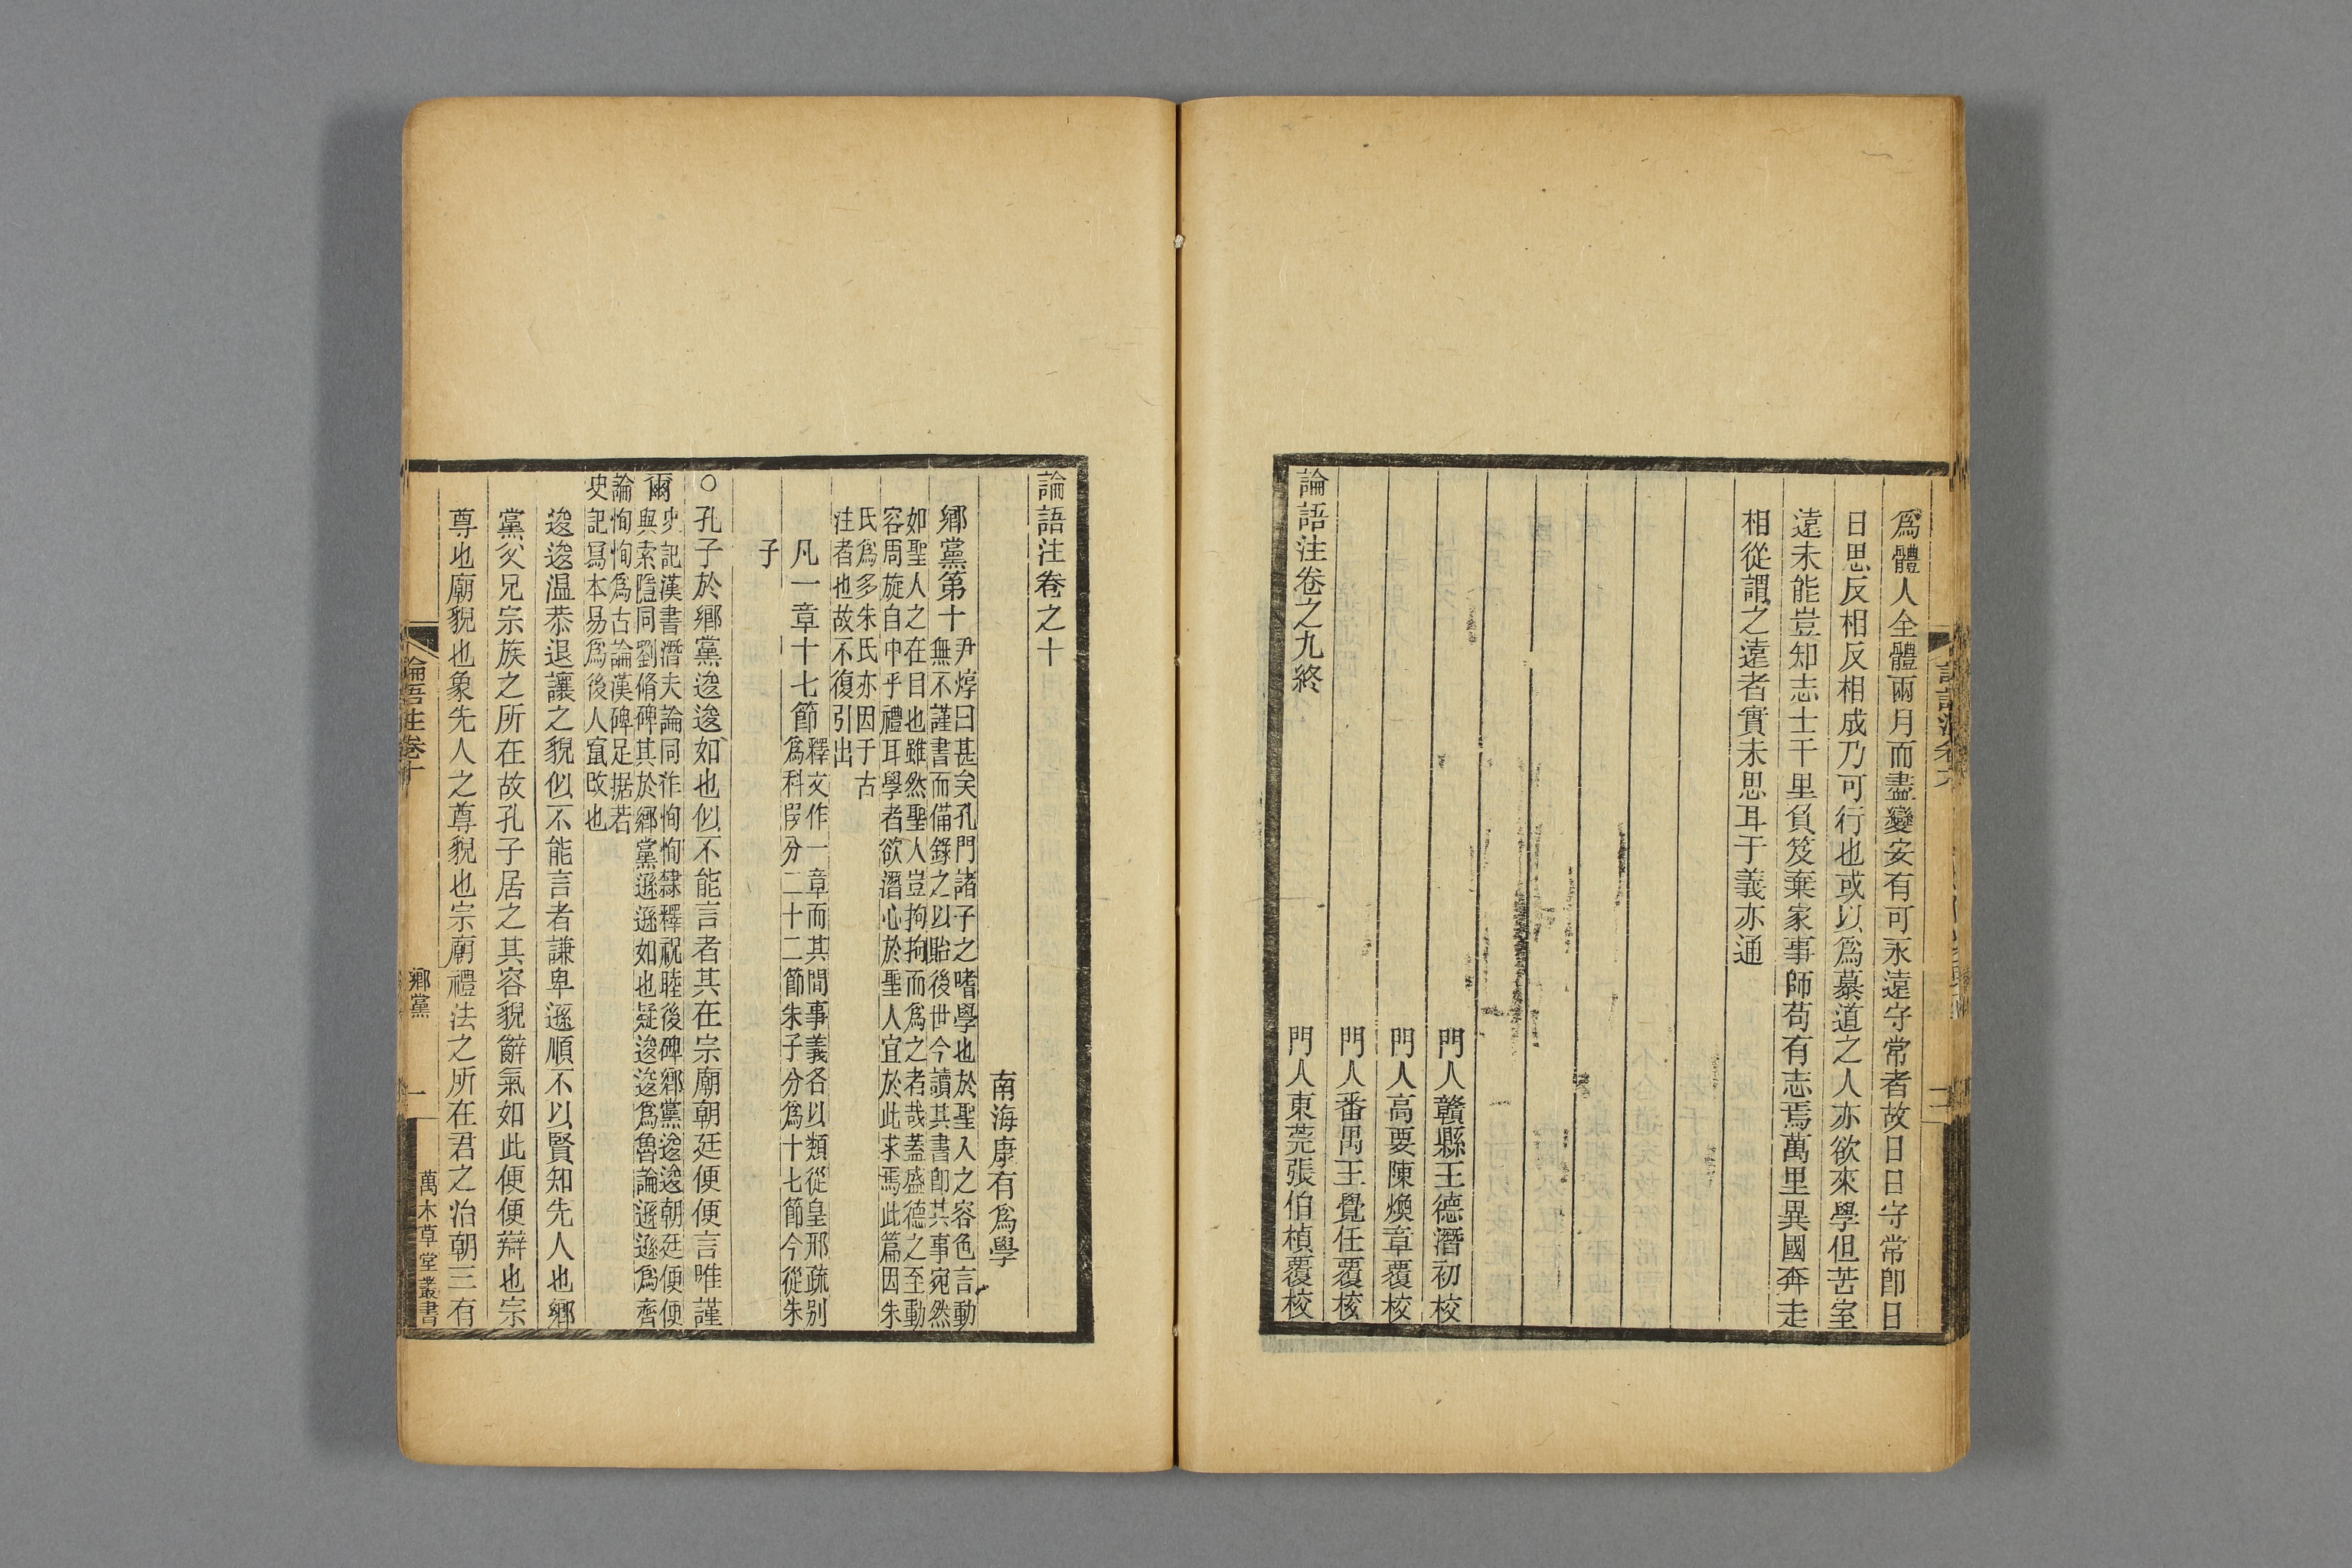 爲體人全體兩月而盡變安有可永遠守常者故日日守常卽日
日思反相反相成乃可行也或以爲慕道之人亦欲來學但苦室
遠未能豈知志士千里負笈棄家事師苟有志焉萬里異國奔走
相從謂之遠者實未思耳于義亦通
門人贛縣王德潛初校
門人高要陳煥章覆校
門人番禺王覺任覆校
論語注卷之九終
門人東莞張伯楨覆校
論語注卷之十
南海康有爲學
鄉黨第十
尹焞曰甚矣孔門諸子之嗜學也於聖人之容色言動
無不謹書而備錄之以貽後世今讀其書卽其事宛然
如聖人之在目也雖然聖人豈拘拘而爲之者哉蓋盛德之至動
容周旋自中乎禮耳學者欲潛心於聖人宜於此求焉此篇因朱
氏爲多朱氏亦因于古
注者也故不復引出
凡一章十七節
釋文作一章而其間事義各以類從皇邢疏別
爲科段分二十二節朱子分爲十七節今從朱
子
○孔子於鄉黨逡逡如也似不能言者其在宗廟朝廷便便言唯謹
爾
史記漢書潛夫論同作恂恂隸釋祝睦後碑鄉黨逡逡朝廷便便
與索隱同劉脩碑其於鄉黨遜遜如也疑逡逡爲魯論遜遜爲齊
論恂恂爲古論漢碑足据若
史記寫本易爲後人竄改也
逡逡溫恭退讓之貌似不能言者謙卑遜順不以賢知先人也鄉
黨父兄宗族之所在故孔子居之其容貌辭氣如此便便辯也宗
尊也廟貌也象先人之尊貌也宗廟禮法之所在君之治朝三有
論語注卷十
鄉黨
一
萬木草堂叢書